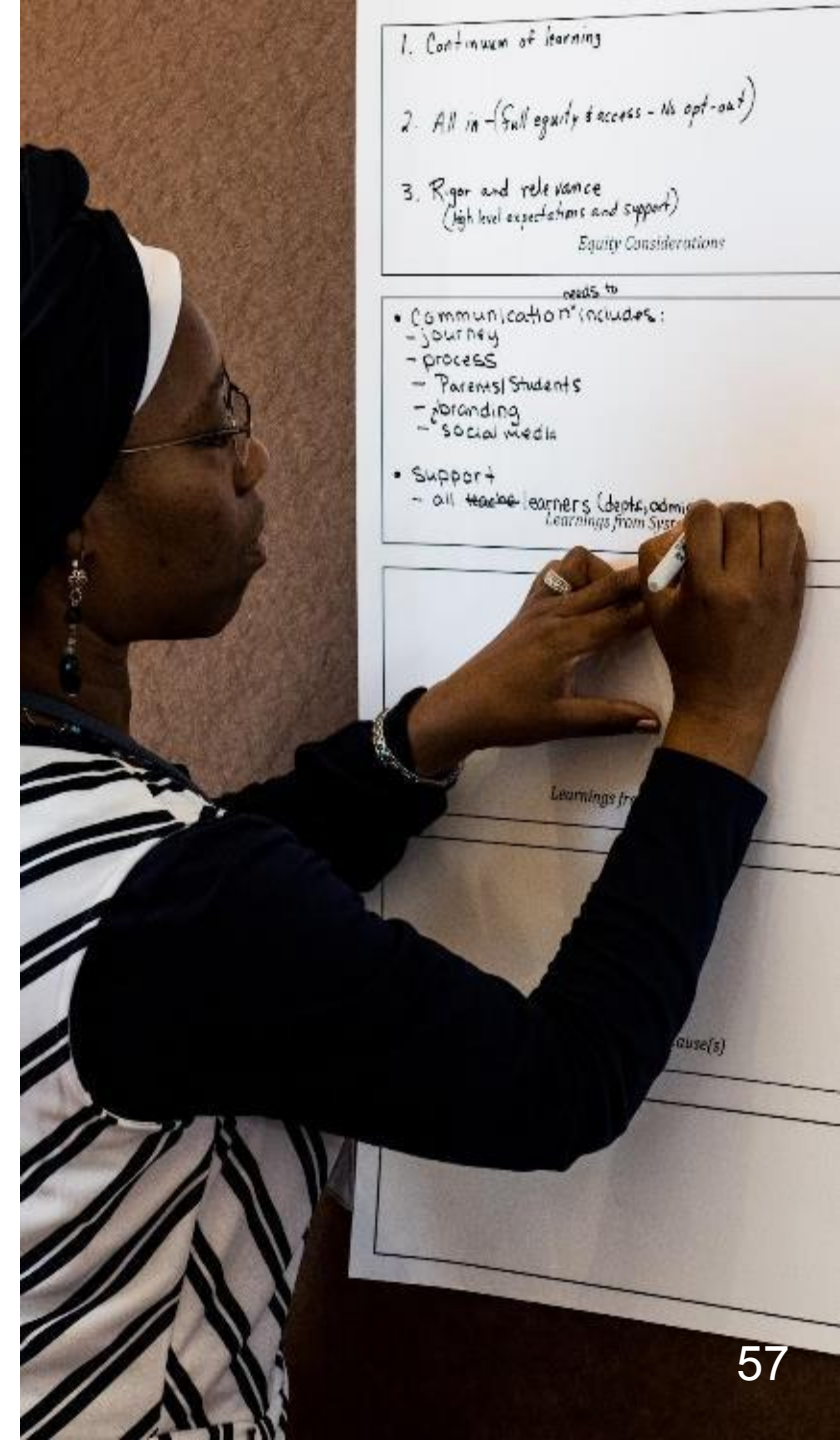 1. Continuum of learning
2. All in - (full equity & access - No opt-out)
3. Rigor and relevance
(high level expectations and support)
Equity Considerations
needs to
• Communication includes:
- journey
- process
- Parents/Students
- branding
- social media
• Support
- all learners (depts, admi
Learnings from Syst
Learnings fro
ause(s)
57